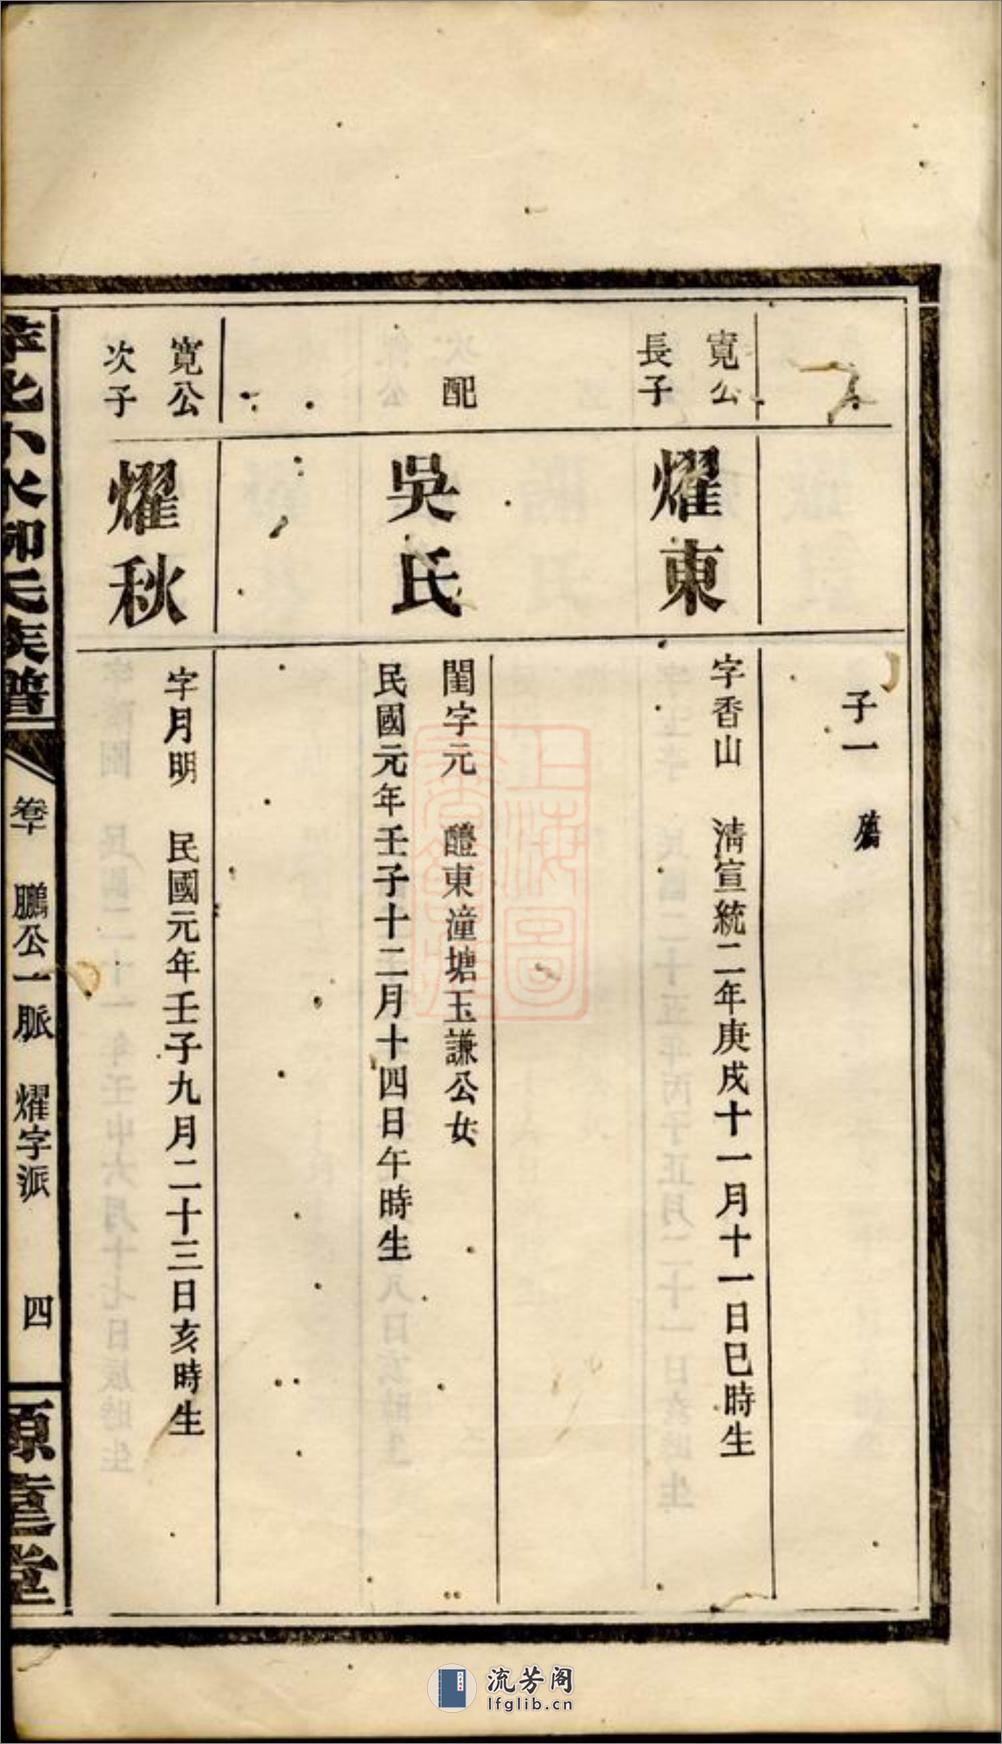 子一
寬公
長子
耀東
字香山 淸宣統二年庚戌十一月十一日巳時生
配
吳氏
閨字元 醴東潼塘玉謙公女
民國元年壬子十二月十四日午時生
寬公
次子
耀秋
字月明 民國元年壬子九月二十三日亥時生
萍北小水柳氏族譜
卷
鵬公一脈 耀字派
四
堂
流芳阁
lfglib.cn